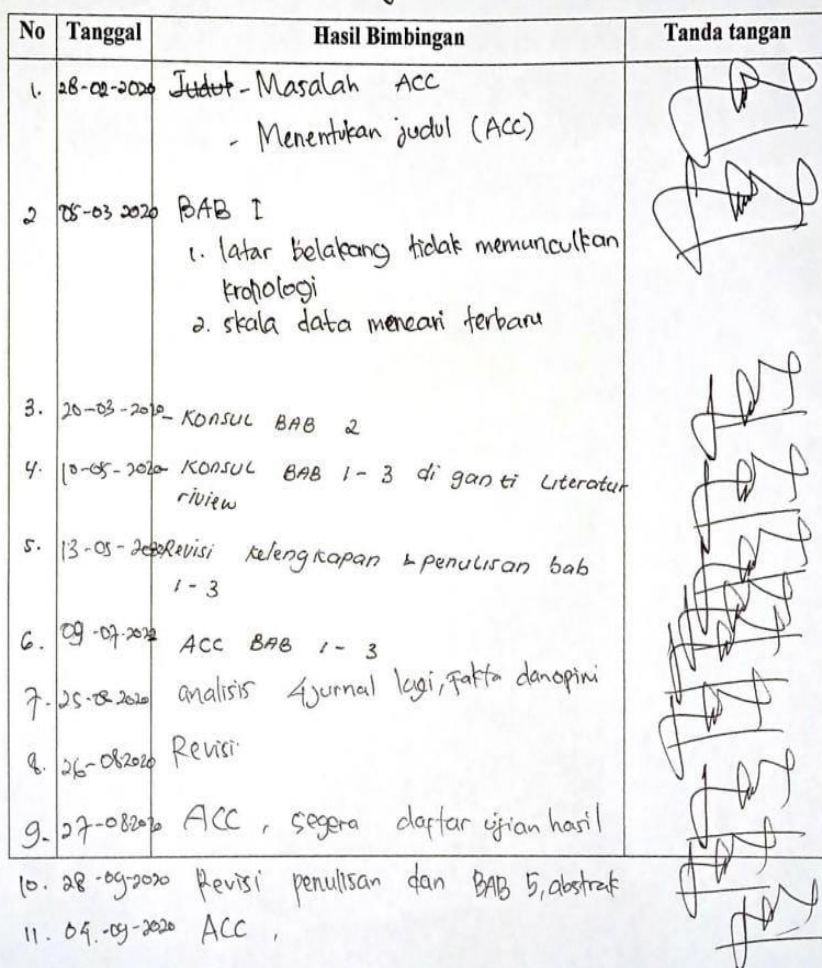 No Tanggal Hasil Bimbingan Tanda tangan
1. 28-02-2020 Judul - Masalah ACC
- Menentukan judul (ACC)
2 05-03 2020 BAB I
1. latar belakang tidak memunculkan
kronologi
2. skala data mencari terbaru
3. 20-03-2020 - Konsul BAB 2
4. 10-05-2020 - Konsul BAB 1-3 di ganti Literatur
riview
5. 13-05-2020 Revisi kelengkapan & penulisan bab
1-3
6. 09-07-2020 ACC BAB 1-3
7. 25-08-2020 analisis 4 jurnal lagi, Fakta dan opini
8. 26-082020 Revisi
9. 27-082020 ACC, segera daftar ujian hasil
10. 28-09-2020 Revisi penulisan dan BAB 5, abstrak
11. 04.-09-2020 ACC,